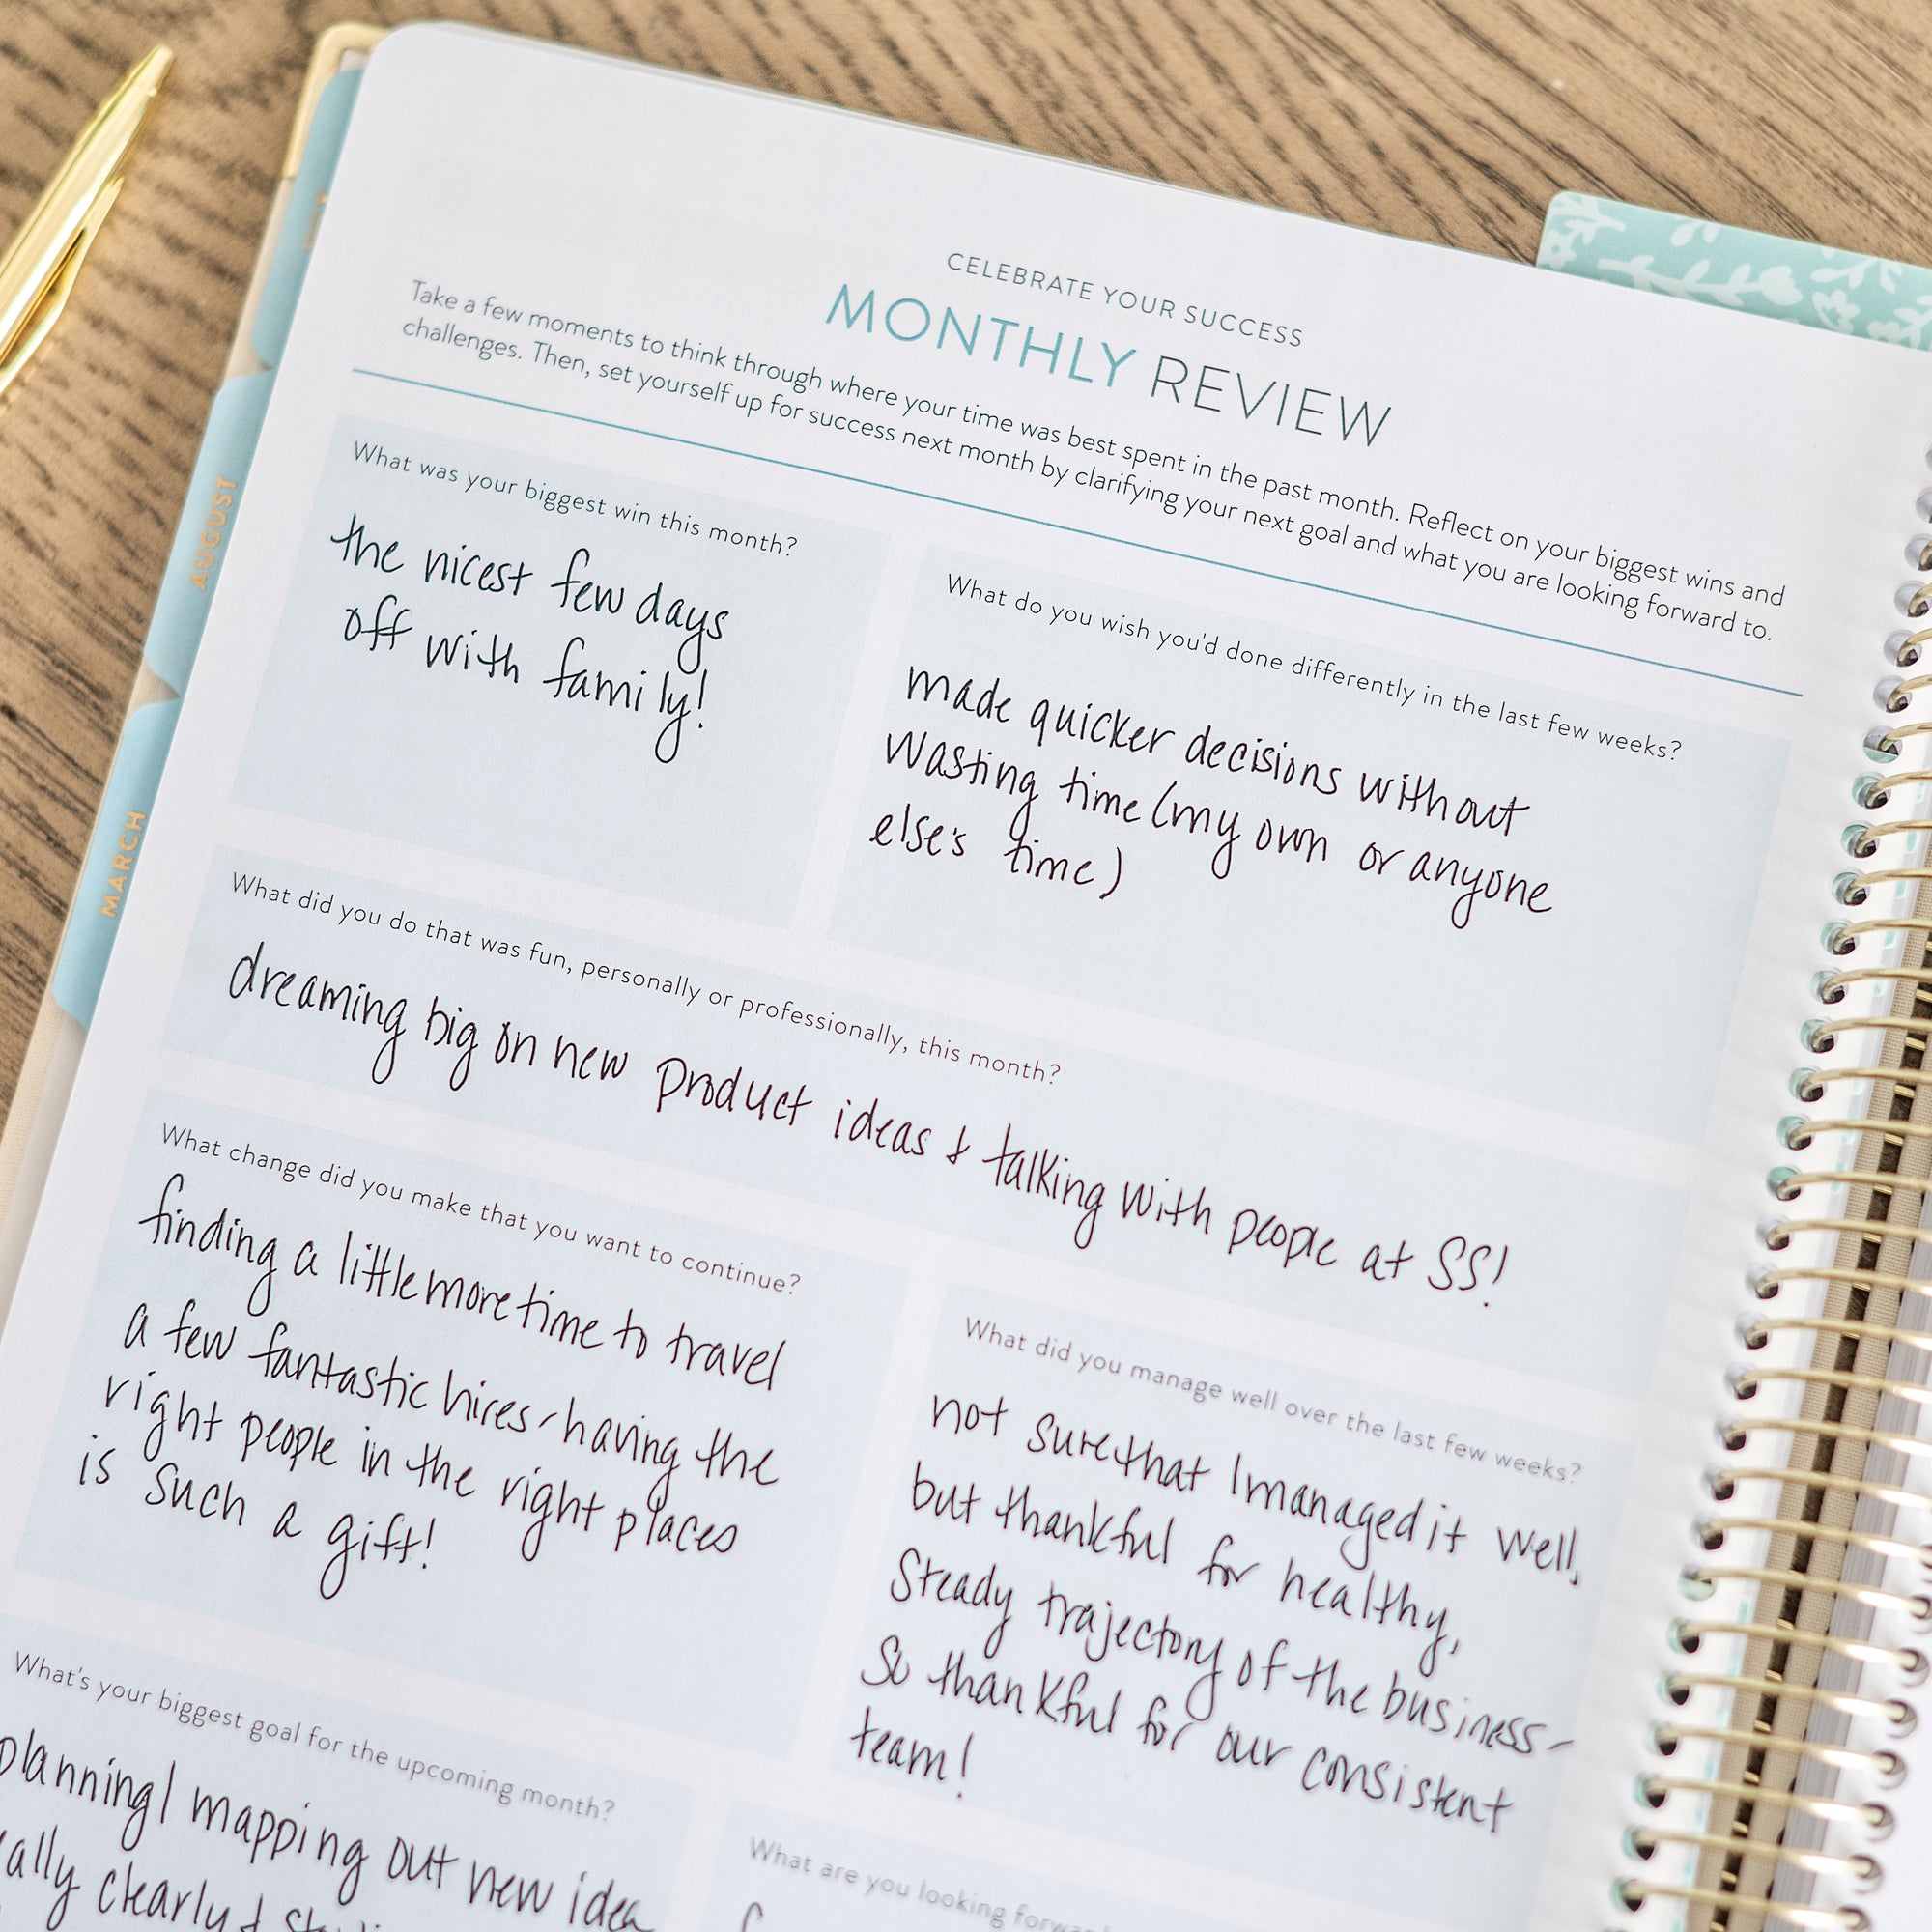 CELEBRATE YOUR SUCCESS
MONTHLY REVIEW
Take a few moments to think through where your time was best spent in the past month. Reflect on your biggest wins and
challenges. Then, set yourself up for success next month by clarifying your next goal and what you are looking forward to.
What was your biggest win this month?
the nicest few days
off with family!
What do you wish you'd done differently in the last few weeks?
made quicker decisions without
wasting time (my own or anyone
else's time)
What did you do that was fun, personally or professionally, this month?
dreaming big on new product ideas & talking with people at SS!
What change did you make that you want to continue?
finding a little more time to travel
a few fantastic hires - having the
right people in the right places
is such a gift!
What did you manage well over the last few weeks?
not sure that I managed it well,
but thankful for healthy,
steady trajectory of the business -
so thankful for our consistent
team!
What's your biggest goal for the upcoming month?
planning/mapping out new idea
clearly &
What are you looking
AUGUST
MARCH